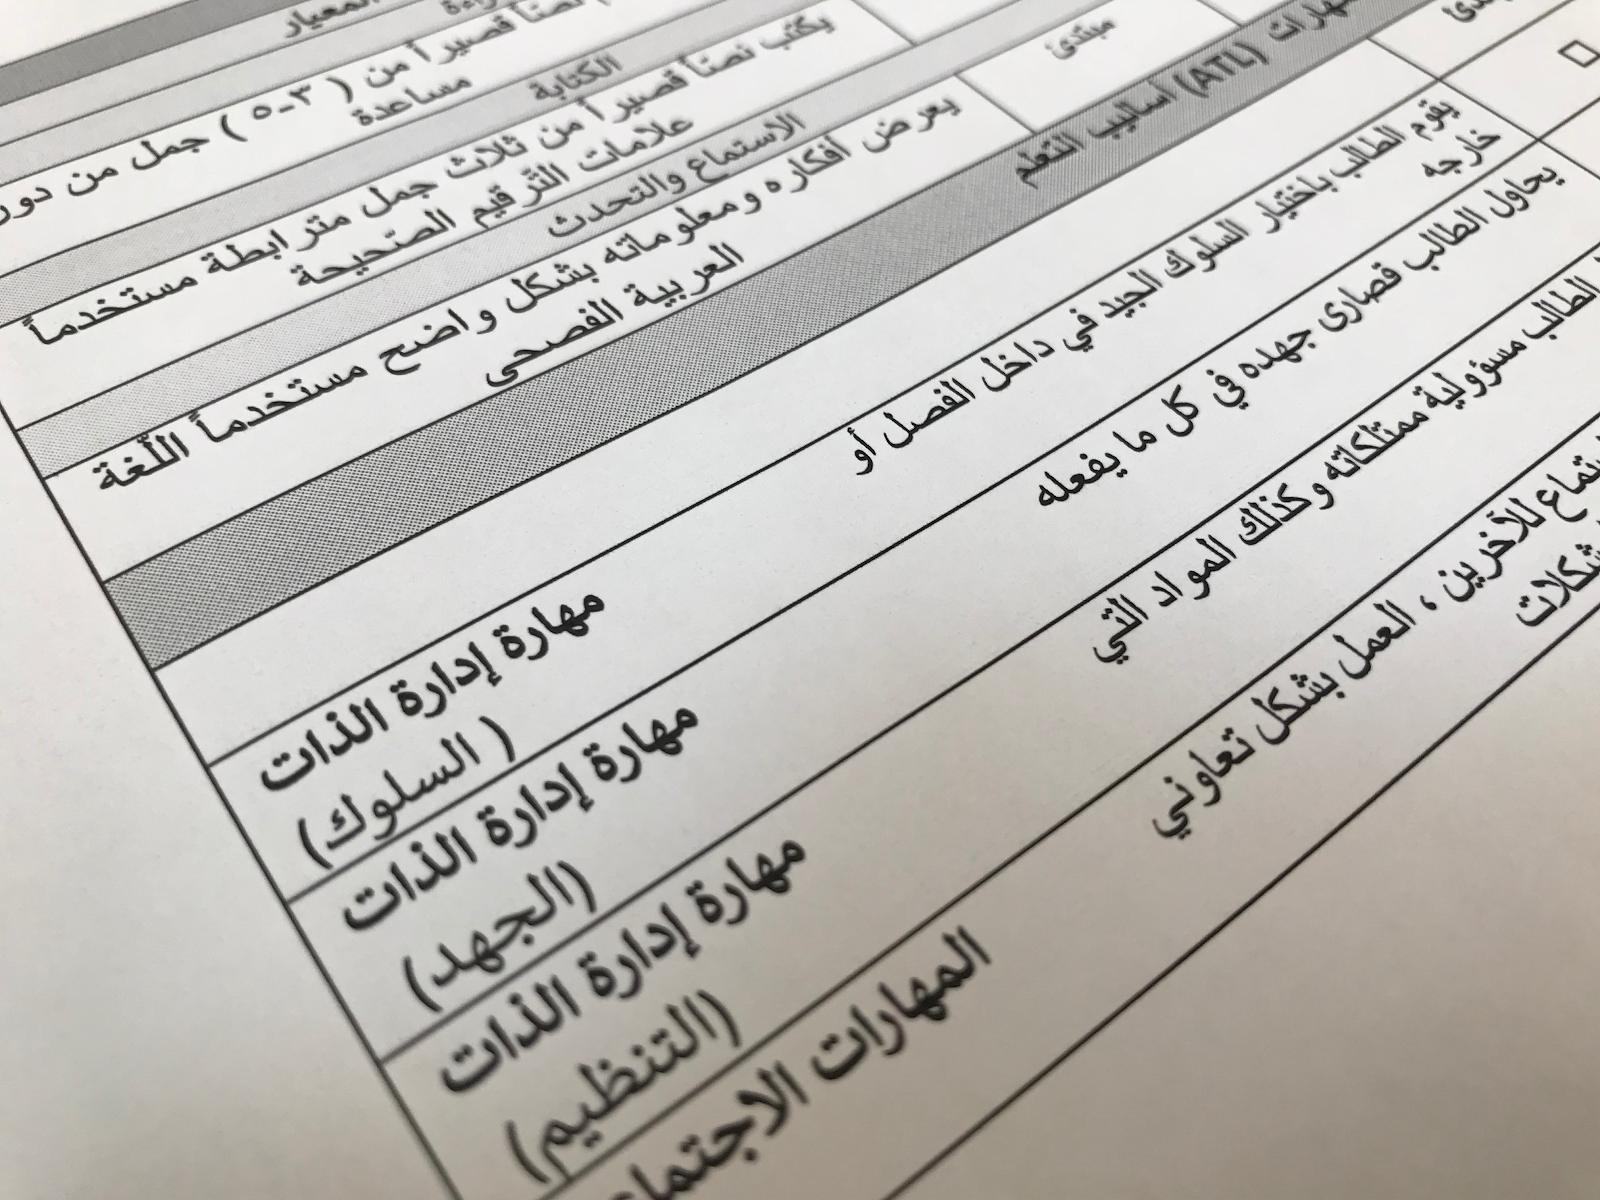 المعيار
نصّاً قصيراً من ( ٣-٥ ) جمل من دون
مساعدة
الكتابة
يكتب نصّاً قصيراً من ثلاث جمل مترابطة مستخدماً
علامات التّرقيم الصّحيحة
مبتدئ
الاستماع والتحدث
يعرض أفكاره ومعلوماته بشكل واضح مستخدماً اللّغة
العربية الفصحى
(ATL) أساليب التعلم
يقوم الطالب باختيار السلوك الجيد في داخل الفصل أو
خارجه
مهارة إدارة الذات
( السلوك)
يحاول الطالب قصارى جهده في كل ما يفعله
مهارة إدارة الذات
(الجهد)
الطالب مسؤولية ممتلكاته وكذلك المواد التي
مهارة إدارة الذات
(التنظيم)
للآخرين ، العمل بشكل تعاوني
المهارات